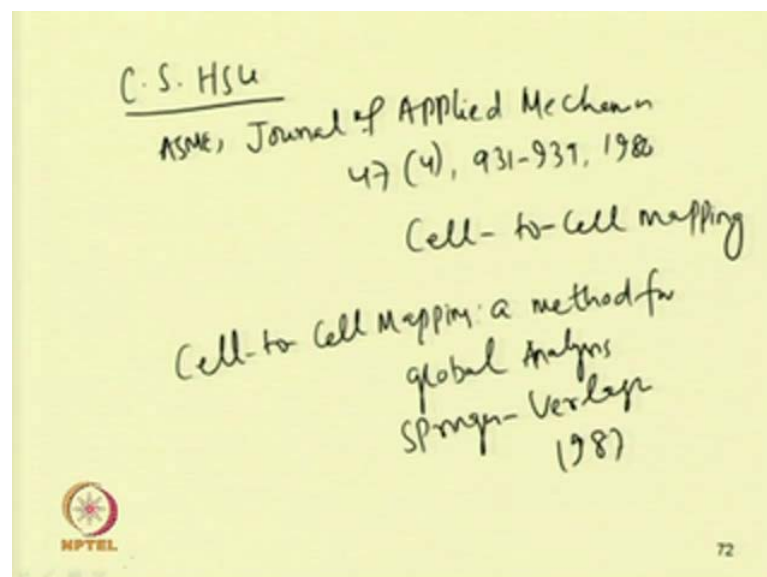 C.S. HSU
ASME, Journal of Applied Mechan
47 (4), 931-939, 1980
Cell-to-Cell mapping
Cell-to Cell Mapping: a method for
global Analysis
Springer-Verlag
1987
NPTEL
72